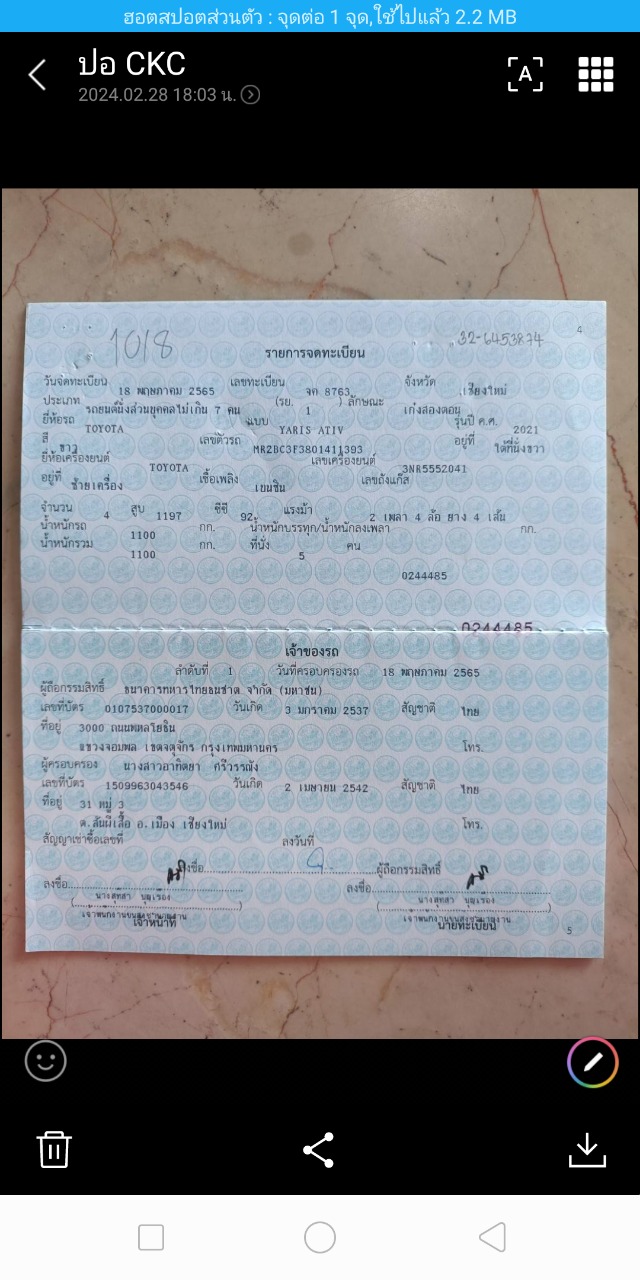 ฮอตสปอตส่วนตัว : จุดต่อ 1 จุด,ใช้ไปแล้ว 2.2 MB
ปอ CKC
2024.02.28 18:03 น.
A
1018
32-6453874
4
รายการจดทะเบียน
วันจดทะเบียน 18 พฤษภาคม 2565 เลขทะเบียน จค 8763 จังหวัด เชียงใหม่
ประเภท รถยนต์นั่งส่วนบุคคลไม่เกิน 7 คน (รย. 1 ) ลักษณะ เก๋งสองตอน
ยี่ห้อรถ TOYOTA แบบ YARIS ATIV รุ่นปี ค.ศ. 2021
สี ขาว เลขตัวรถ MR2BC3F3801411393 อยู่ที่ ใต้ที่นั่งขวา
ยี่ห้อเครื่องยนต์ TOYOTA เลขเครื่องยนต์ 3NR5552041
อยู่ที่ ซ้ายเครื่อง เชื้อเพลิง เบนซิน เลขถังแก๊ส
จำนวน 4 สูบ 1197 ซีซี 92 แรงม้า 2 เพลา 4 ล้อ ยาง 4 เส้น
น้ำหนักรถ 1100 กก. น้ำหนักบรรทุก/น้ำหนักลงเพลา กก.
น้ำหนักรวม 1100 กก. ที่นั่ง 5 คน
0244485
0244485
เจ้าของรถ
ลำดับที่ 1 วันที่ครอบครองรถ 18 พฤษภาคม 2565
ผู้ถือกรรมสิทธิ์ ธนาคารทหารไทยธนชาต จำกัด (มหาชน)
เลขที่บัตร 0107537000017 วันเกิด 3 มกราคม 2537 สัญชาติ ไทย
ที่อยู่ 3000 ถนนพหลโยธิน
แขวงจอมพล เขตจตุจักร กรุงเทพมหานคร โทร.
ผู้ครอบครอง นางสาวอาทิตยา ศรีวรรณัง
เลขที่บัตร 1509963043546 วันเกิด 2 เมษายน 2542 สัญชาติ ไทย
ที่อยู่ 31 หมู่ 3
ต.สันผีเสื้อ อ.เมือง เชียงใหม่ โทร.
สัญญาเช่าซื้อเลขที่ ลงวันที่
ลงชื่อ ผู้ถือกรรมสิทธิ์
ลงชื่อ ลงชื่อ
นางสุทิสา บุญเรือง นางสุทิสา บุญเรือง
เจ้าพนักงานขนส่งชำนาญงาน เจ้าพนักงานขนส่งชำนาญงาน
เจ้าหน้าที่ นายทะเบียน
5